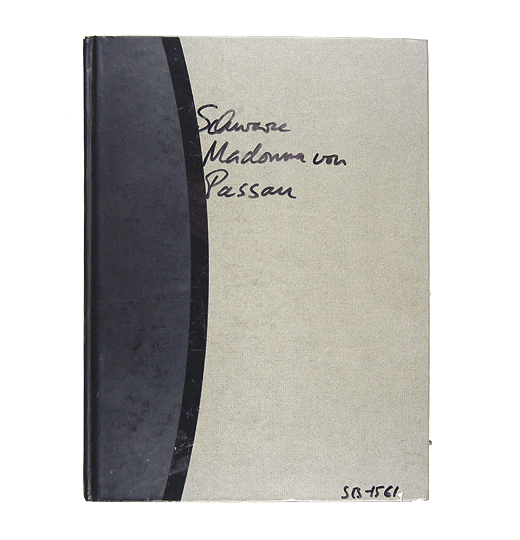 Schwarze
Madonna von
Passau
SB-1561